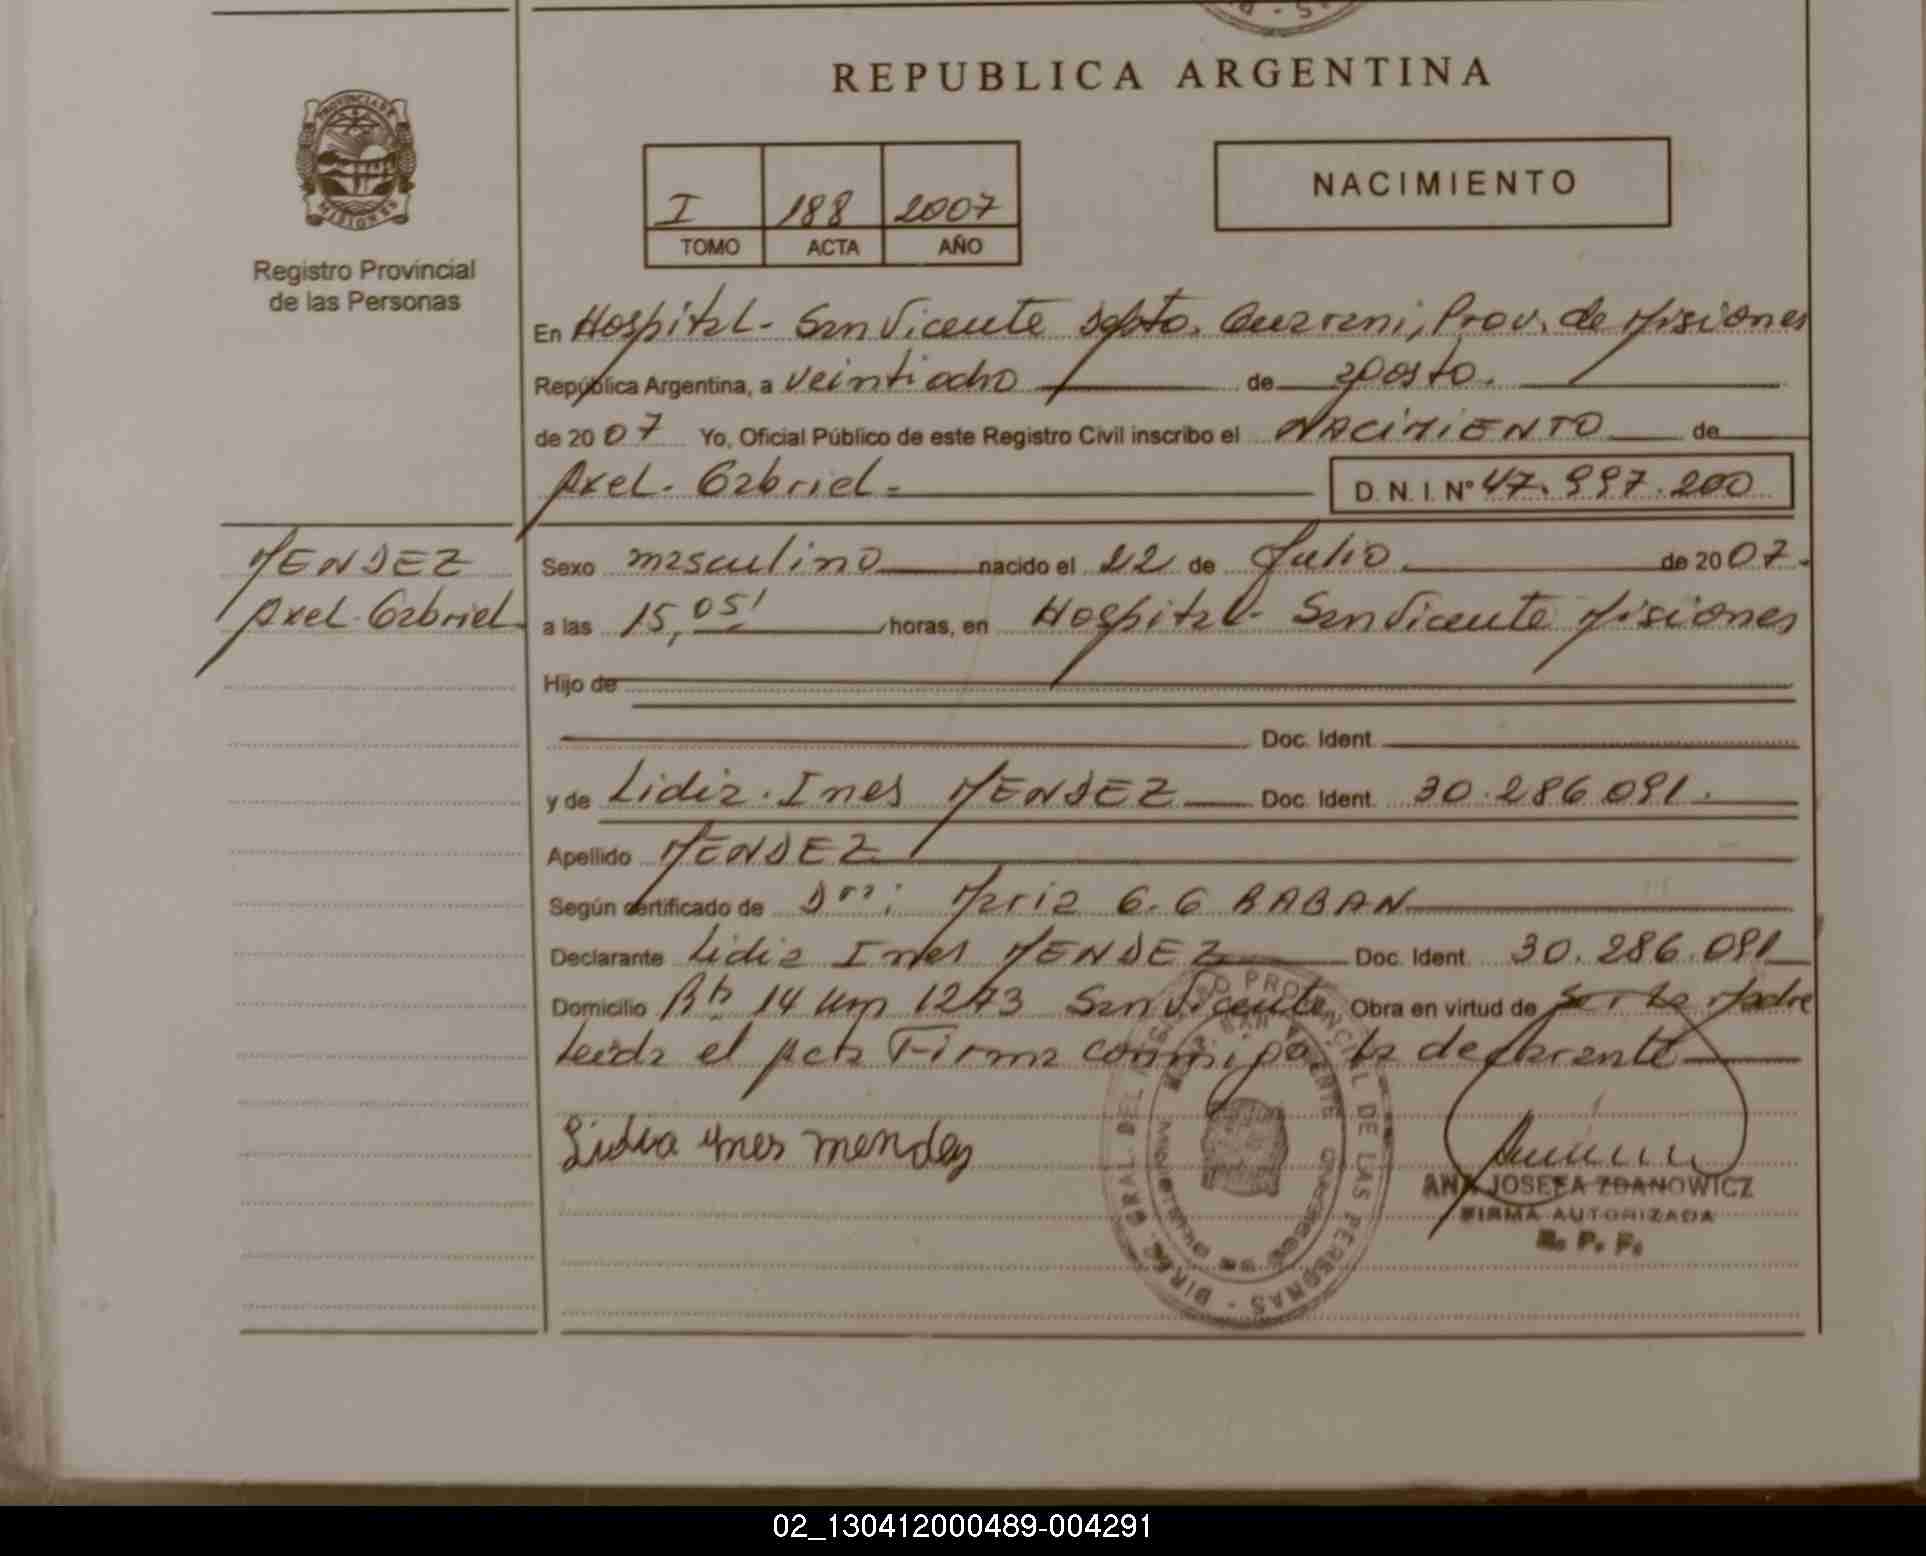 REPUBLICA ARGENTINA
PROVINCIA DE MISIONES
Registro Provincial
de las Personas
I 188 2007
TOMO ACTA AÑO
NACIMIENTO
En Hospital - San Vicente Dpto. Guarani, Prov. de Misiones
República Argentina, a veintiocho de agosto.
de 2007 Yo, Oficial Público de este Registro Civil inscribo el NACIMIENTO de
Axel. Gabriel.= D. N. I. Nº 47.997.200
MENDEZ
Axel. Gabriel.
Sexo masculino nacido el 22 de Julio de 2007.
a las 15,05' horas, en Hospital - San Vicente Misiones
Hijo de
Doc. Ident.
y de Lidia. Ines MENDEZ Doc. Ident. 30.286.091.
Apellido MENDEZ
Según certificado de Dra: Maria G. G RABAN
Declarante Lidia Ines MENDEZ Doc. Ident. 30.286.091
Domicilio Rta 14 Km 1273 San Vicente, Obra en virtud de Ser La Madre
Leida el Acta Firma conmigo La declarante
Lidia ynes mendez
DIREC. GRAL. DEL REGISTRO PROVINCIAL DE LAS PERSONAS
SAN VICENTE
ANA JOSEFA ZDANOWICZ
FIRMA AUTORIZADA
R. P. P.
02_130412000489-004291